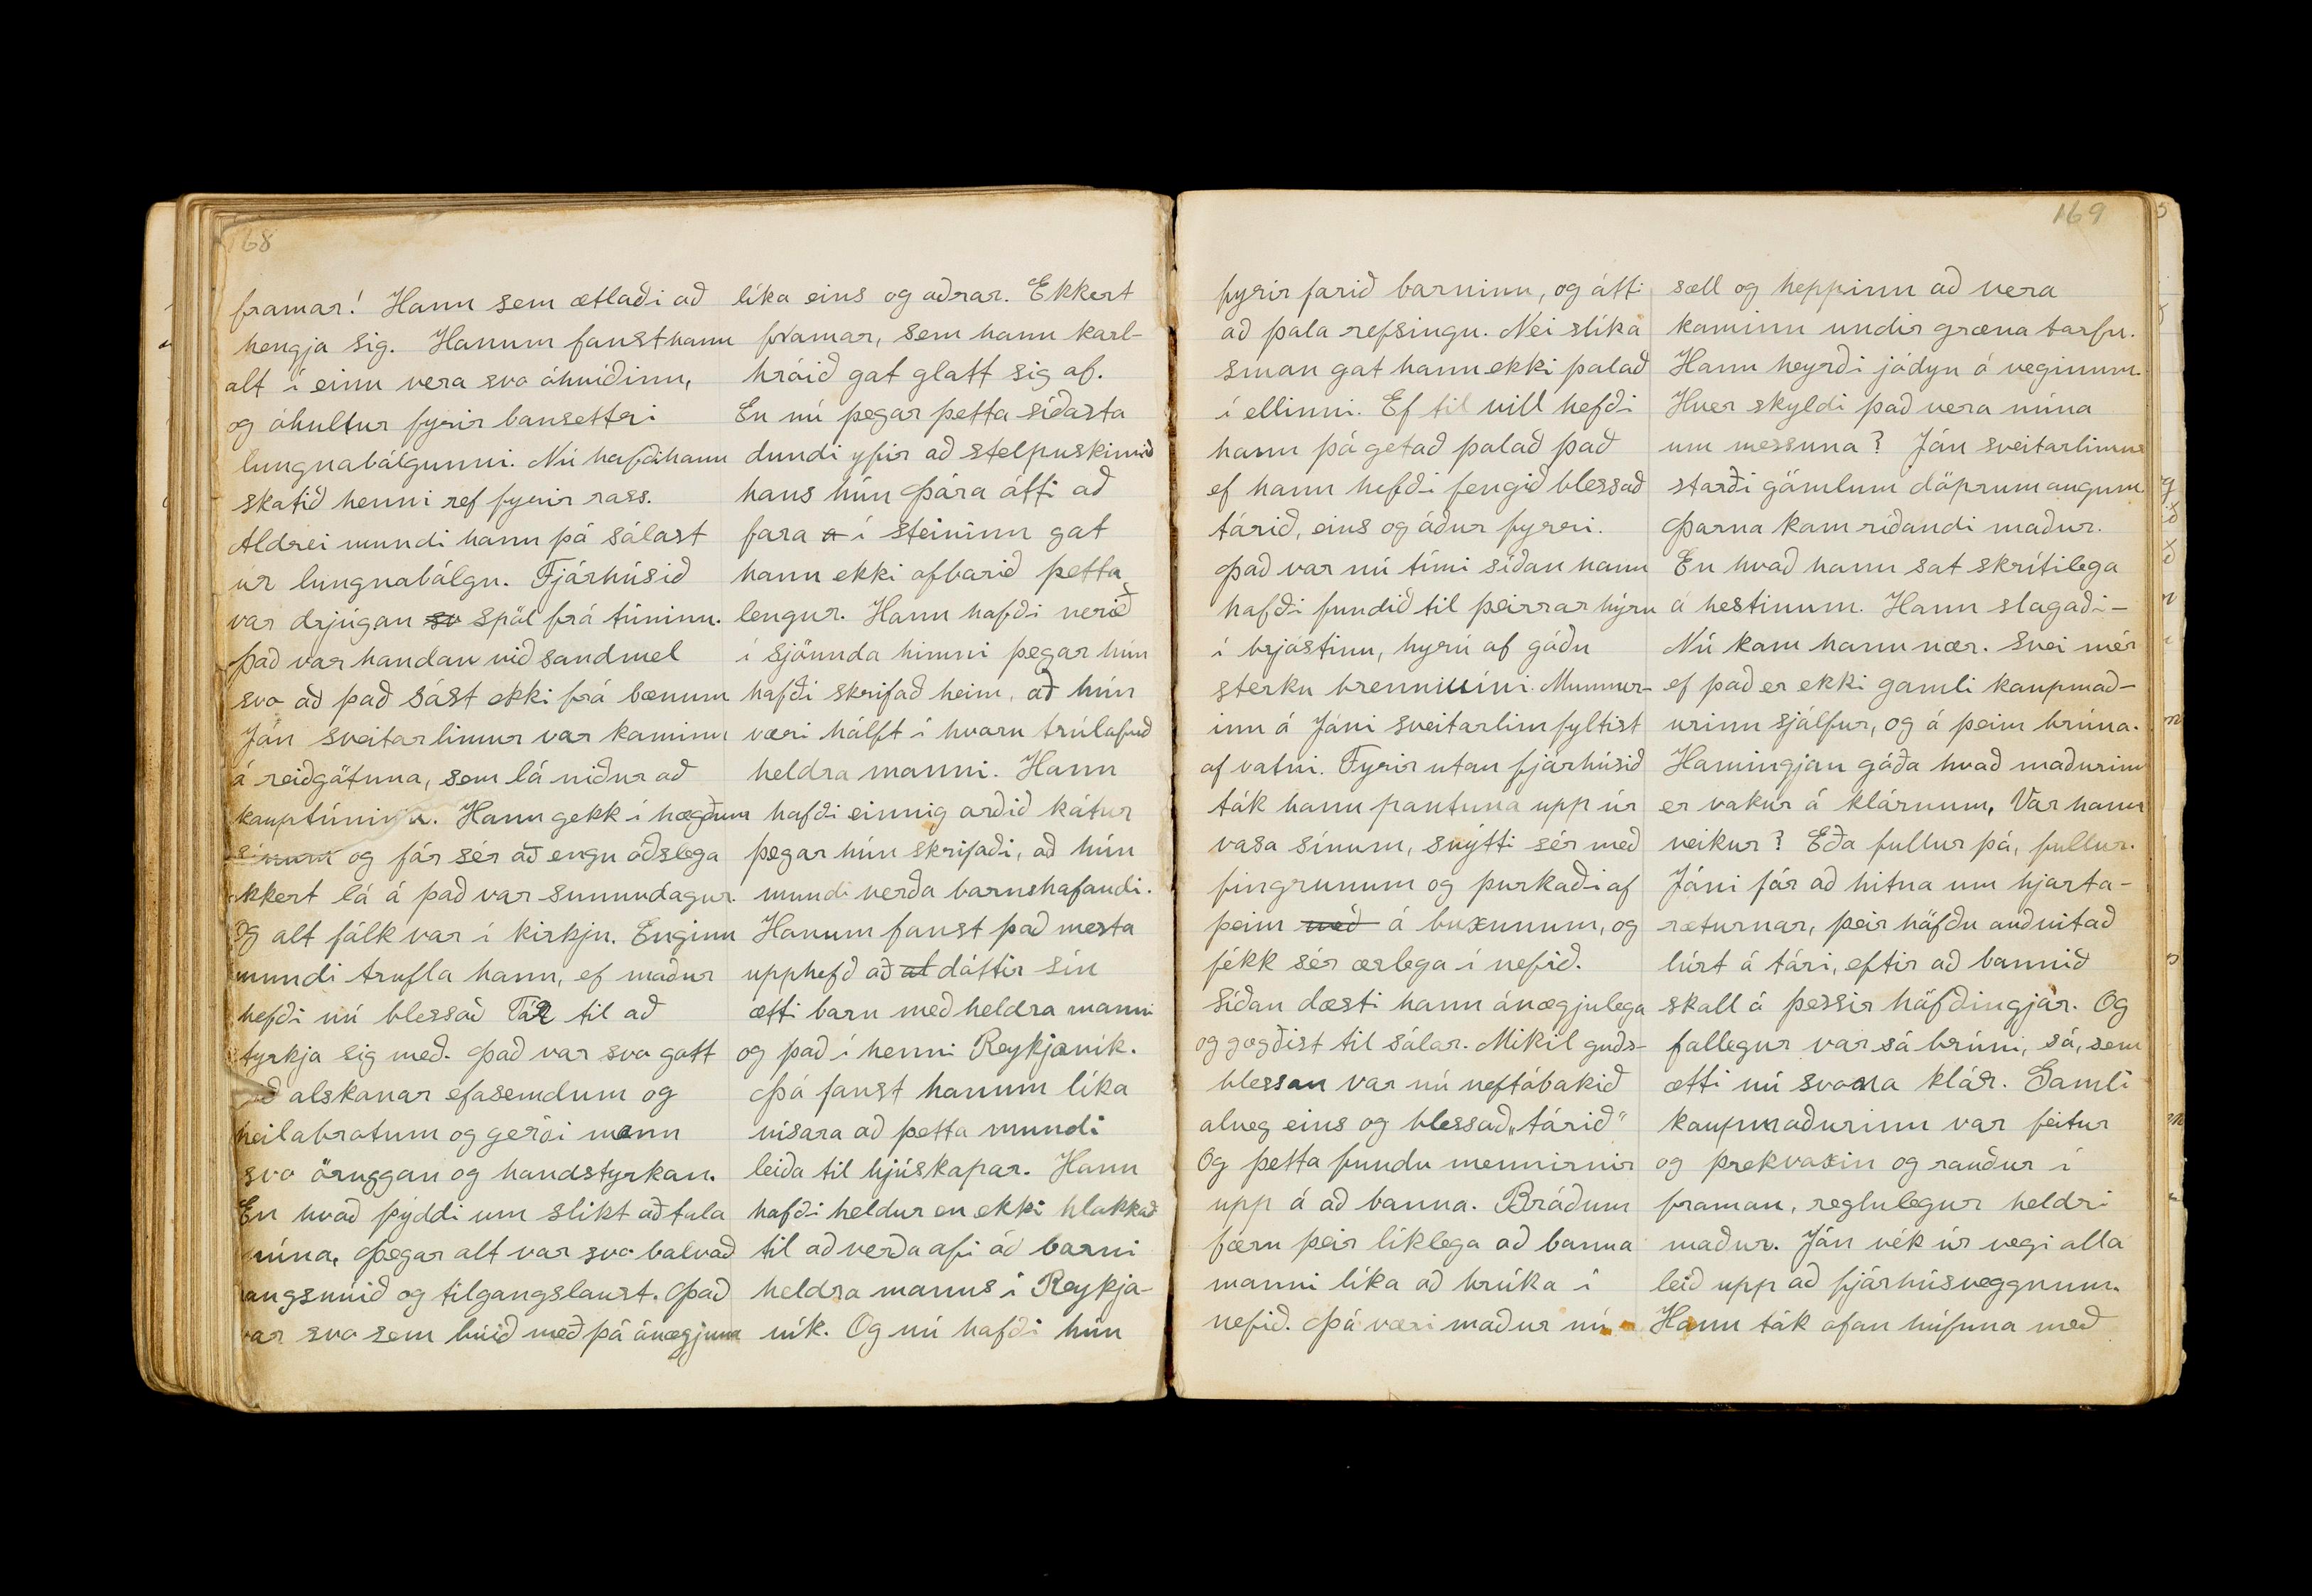 168
framar! Hann sem ætlaði að
hengja sig. Honum fanst hann
alt í einu vera svo óhviðinn,
og óhultur fyrir bansettri
lungnabólgunni. Nú hafði hann
skotið henni ref fyrir rass.
Aldrei mundi hann þá sálast
úr lungnabólgu. Fjárhúsið
var drjúgan so spöl frá túninu.
Það var handan við sandmel
svo að það sást ekki frá bænum
Jón sveitarlimur var kominn
á reiðgötuna, sem lá niður að
kauptúninu. Hann gekk í hægðum
sínum og fór sér að engu óðslega
ekkert lá á það var sunnudagur.
Og alt fólk var í kirkju. Enginn
mundi trufla hann, ef maður
hefði nú blessað Tár til að
styrkja sig með. Það var svo gott
við alskonar efasemdum og
heilabrotum og gerði mann
svo öruggan og handstyrkan.
En hvað þýddi um slikt að tala
núna, þegar alt var svo bölvað
rangsnúið og tilgangslaust. Það
var svo sem búið með þá ánægjuna
líka eins og aðrar. Ekkert
framar, sem hann karl-
hróið gat glatt sig af.
En nú þegar þetta síðasta
dundi yfir að stelpuskinnið
hans hún Þóra átti að
fara a í steininn gat
hann ekki afborið þetta
lengur. Hann hafði verið
í sjöunda himni þegar hún
hafði skrifað heim, að hún
væri hálft í hvoru trúlofuð
heldra manni. Hann
hafði einnig orðið kátur
þegar hún skrifaði, að hún
mundi verða barnshafandi.
Honum fanst það mesta
upphefð að al dóttir sín
ætti barn með heldra manni
og það í henni Reykjavík.
Þá fanst honum líka
vísara að þetta mundi
leiða til hjúskapar. Hann
hafði heldur en ekki hlakkað
til að verða afi að barni
heldra manns í Reykja-
vík. Og nú hafði hún
169
fyrir farið barninu, og átti
að þola refsingu. Nei slíka
sman gat hann ekki þolað
í ellinni. Ef til vill hefði
hann þá getað þolað það
ef hann hefði fengið blessað
tárið, eins og áður fyrri.
Það var nú tími síðan hann
hafði fundið til þeirrar hýru
í brjóstinu, hyrú af góðu
sterku brennivíni. Munnur-
inn á Jóni sveitarlim fyltist
af vatni. Fyrir utan fjárhúsið
tók hann pontuna upp úr
vasa sínum, snýtti sér með
fingrunum og þurkaði af
þeim með á buxunum, og
fékk sér ærlega í nefið.
Síðan dæsti hann ánægjulega
og gægðist til sólar. Mikil guðs-
blessan var nú neftóbakið
alveg eins og blessað „tárið"
Og þetta fundu mennirnir
upp á að banna. Bráðum
færu þeir líklega að banna
manni líka að brúka í
nefið. Þá væri maður nú
sæll og heppinn að vera
kominn undir græna torfu.
Hann heyrði jódyn á veginum.
Hver skyldi það vera núna
um messuna? Jón sveitarlimur
starði gömlum döprum augum.
Þarna kom ríðandi maður.
En hvað hann sat skrítilega
á hestinum. Hann slagaði-
Nú kom hann nær. Svei mér
ef það er ekki gamli kaupmað-
urinn sjálfur, og á þeim brúna.
Hamingjan góða hvað maðurinn
er vakur á klárnum, Var hann
veikur? Eða fullur þá, fullur.
Jóni fór að hitna um hjarta-
ræturnar, þeir höfðu auðvitað
lúrt á tári, eftir að bannið
skall á þessir höfðingjar. Og
fallegur var sá brúni, sá, sem
ætti nú svona klár. Gamli
kaupmaðurinn var feitur
og þrekvaxin og rauður í
framan, reglulegur heldri
maður. Jón vék úr vegi alla
leið upp að fjárhúsveggnum.
Hann tók ofan húfuna með